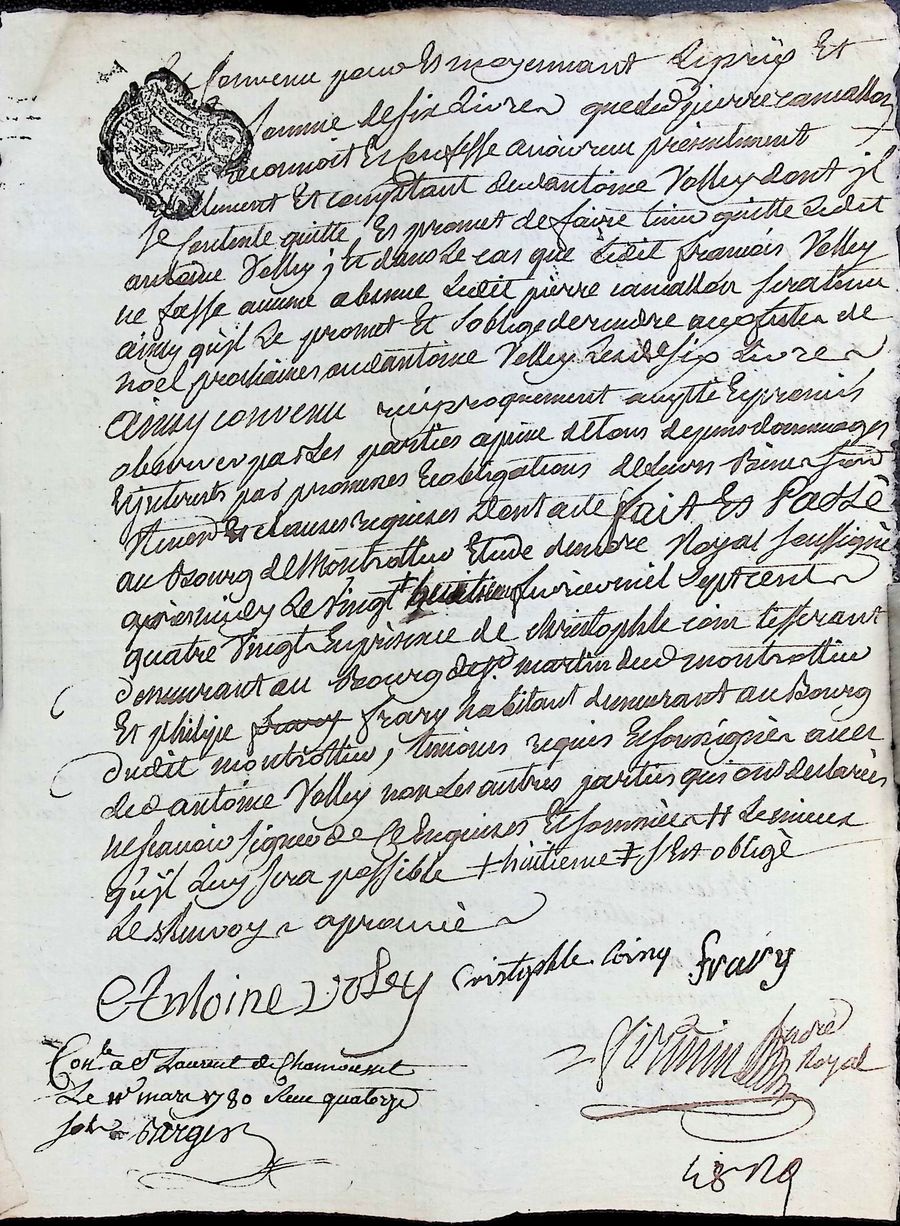 Convenu pour Et moyennant Leprix Et
Somme desix Livres quedud pierre camallon
reconnoit Et Confesse avoir reçu présentement
Et comptant dud antoine Volley dont jl
Se Contente quitte Et promet de faire tenir quitte Ledit
antoine Volley; Et dans Le cas que Ledit françois Volley
ne fasse aucune Ledit pierre camallon sera tenu
ainsy qu'jl Le promet Et Soblige de rendre aux festes de
noel prochaines aud antoine Volley Lesd six Livres
Ainsy convenu reciproquement accepté Et promis
observer par Les parties a peine de tous depens dommages
Et jnterests par promesses Et obligations de Leurs Biens
Et clauses requises dont acte fait Et Passé
au Bourg de Montrottier Etude du nore Royal Soussigné
apres midy Le Vingt fevrier mil Sept cent
quatre Vingt En présence de christophle coin tisserant
demeurant au Bourg de St. martin dud montrottier
Et philipe frary habitant demeurant au Bourg
dudit montrottier, temoins requis Et Soussignés avec
led antoine Volley non Les autres parties qui ont declarées
ne scavoir signer de Ce Enquises Et Sommées ++ Le mieux
qu'jl Luy sera possible + huitieme ‡ s'Est obligé
Le Renvoy aprouvé
Antoine Voley Cristophle Coing frary
Conle. a St Laurent de Chamousset
Le mars 1780 Reçu quatorze
sols
nore
Royal